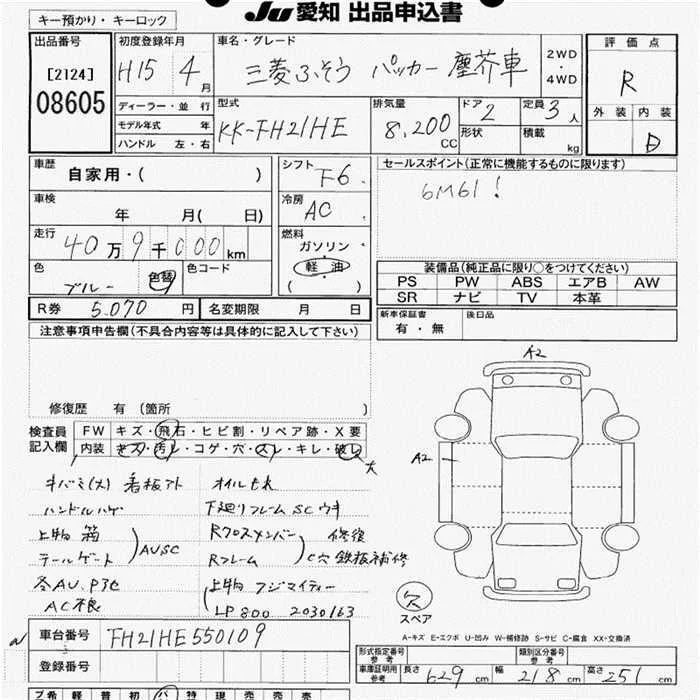 JU 愛知 出品申込書
キー預かり・キーロック
出品番号
[2124]
08605
初度登録年月
H15 4月
車名・グレード
三菱ふそう パッカー 塵芥車
2WD
・
4WD
評価点
R
外装 内装
D
ディーラー・並行
モデル年式 年
ハンドル 左・右
型式
KK-FH21HE
排気量
8,200
CC
ドア
2
形状
定員
3人
積載
kg
車歴
自家用・( )
車検
年 月( 日)
走行
40万9千000km
色
ブルー
色替
色コード
シフト
F6
冷房
AC
燃料
ガソリン・
軽油・
( )
セールスポイント(正常に機能するものに限ります)
6M61!
装備品(純正品に限り○をつけてください)
PS PW ABS エアB AW
SR ナビ TV 本革
R券 5,070円 名変期限 月 日
新車保証書
有・無
後日品
注意事項申告欄(不具合内容等は具体的に記入して下さい)
修復歴 有(箇所 )
検査員
記入欄
FW キズ・飛石・ヒビ割・リペア跡・X要
内装 キズ・汚レ・コゲ・穴・スレ・キレ・破レ
大
キバミ(大) 看板アト
ハンドルハゲ
上物 箱
テールゲート
AUSC
各AU.P3セ
AC不良
オイルモレ
下廻りフレームSCウキ
Rクロスメンバー 修復
Rフレーム C穴 鉄板補修
上物 フジマイティー
LP800 2030163
A2
A2
欠
スペア
A-キズ E-エクボ U-凹み W-補修跡 S-サビ C-腐食 XX-交換済
車台番号 FH21HE550109
登録番号
形式指定番号
参考
類別区分番号
参考
車庫証明用
参考
長さ 629cm 幅 218cm 高さ 251cm
プ 希 軽 普 初 パ 特 現 売 売 売